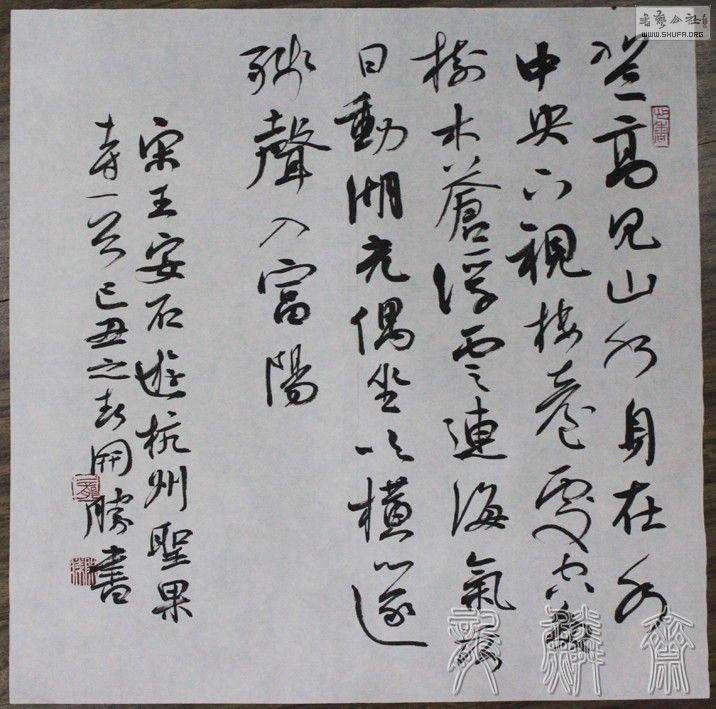 登高見山水身在水
中央下視樓臺處空多
樹木蒼浮雲連海氣落
日動湖光偶坐吹橫篴
殘聲入富陽
宋王安石遊杭州聖果
寺一首己丑之春開勝書
書藝公社
WWW.SHUFA.ORG
龍麟齋